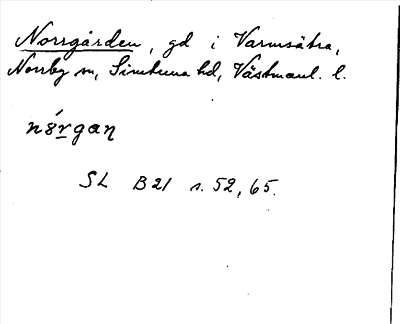 Norrgården, gd i Varmsätra,
Norrby sn, Simtuna hd, Västmanl. l.
nǒ́rgaṇ
SL B21 s. 52, 65.